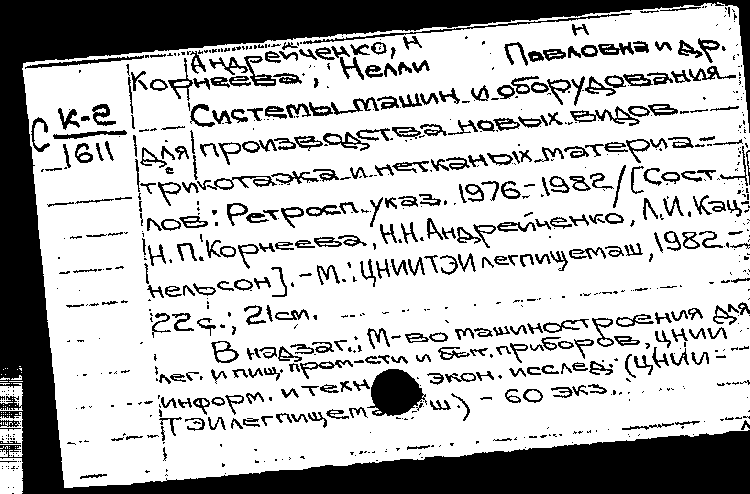 Андрейченко, Н Н
Корнеева, Нелли Павловна и др.
С К-2
1611
Системы машин и оборудования
для производства новых видов
трикотажа и нетканых материа-
лов: Ретросп. указ. 1976-1982/[Сост.
Н.П. Корнеева, Н.Н. Андрейченко, Л.И. Кац-
нельсон]. - М.: ЦНИИТЭИлегпищемаш, 1982. -
22 с.; 21 см.
В надзаг.: М-во машиностроения для
лег. и пищ. пром-сти и быт. приборов, ЦНИИ
информ. и техн. экон. исслед. (ЦНИИ-
ТЭИлегпищемаш.) - 60 экз.